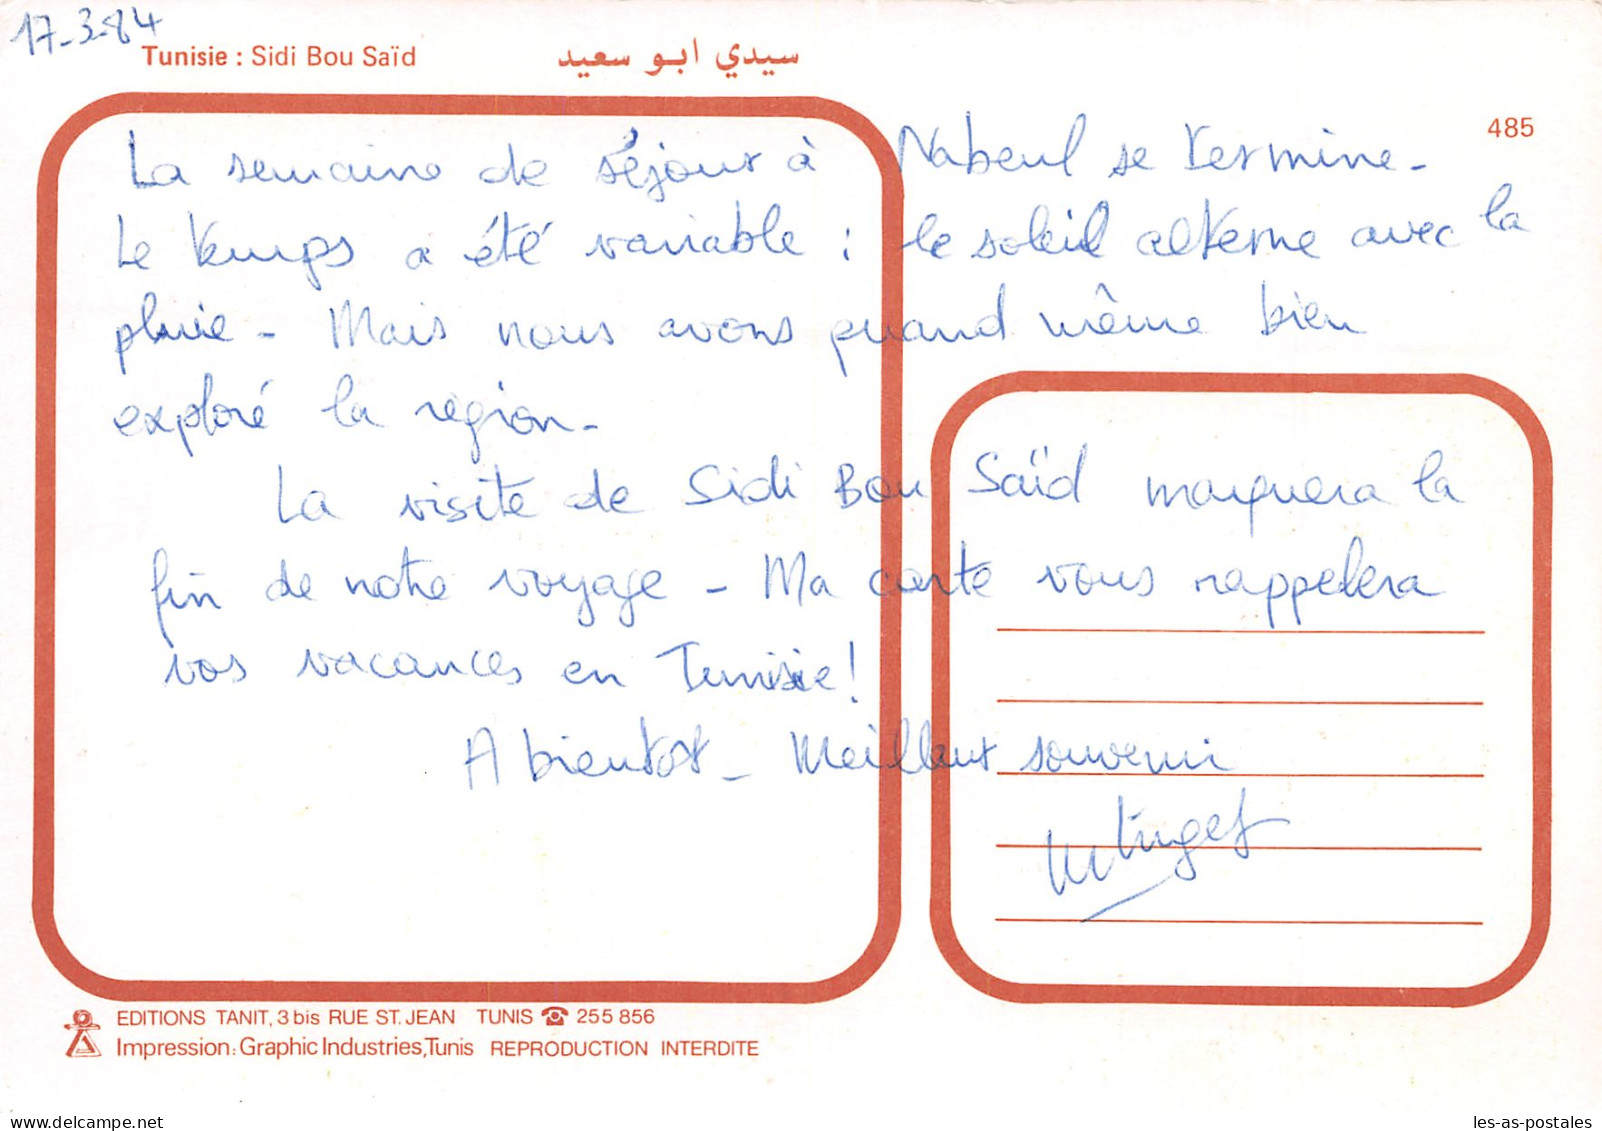 17-3-84
Tunisie : Sidi Bou Saïd سيدي ابو سعيد
485
La semaine de séjour à Nabeul se termine -
Le temps a été variable : le soleil alterne avec la
pluie - Mais nous avons quand même bien
exploré la région -
La visite de Sidi Bou Saïd marquera la
fin de notre voyage - Ma carte vous rappelera
vos vacances en Tunisie !
A bientot - Meilleur souvenir
EDITIONS TANIT, 3 bis RUE ST. JEAN TUNIS ☎ 255 856
Impression: Graphic Industries, Tunis REPRODUCTION INTERDITE
les-as-postales
delcampe.net